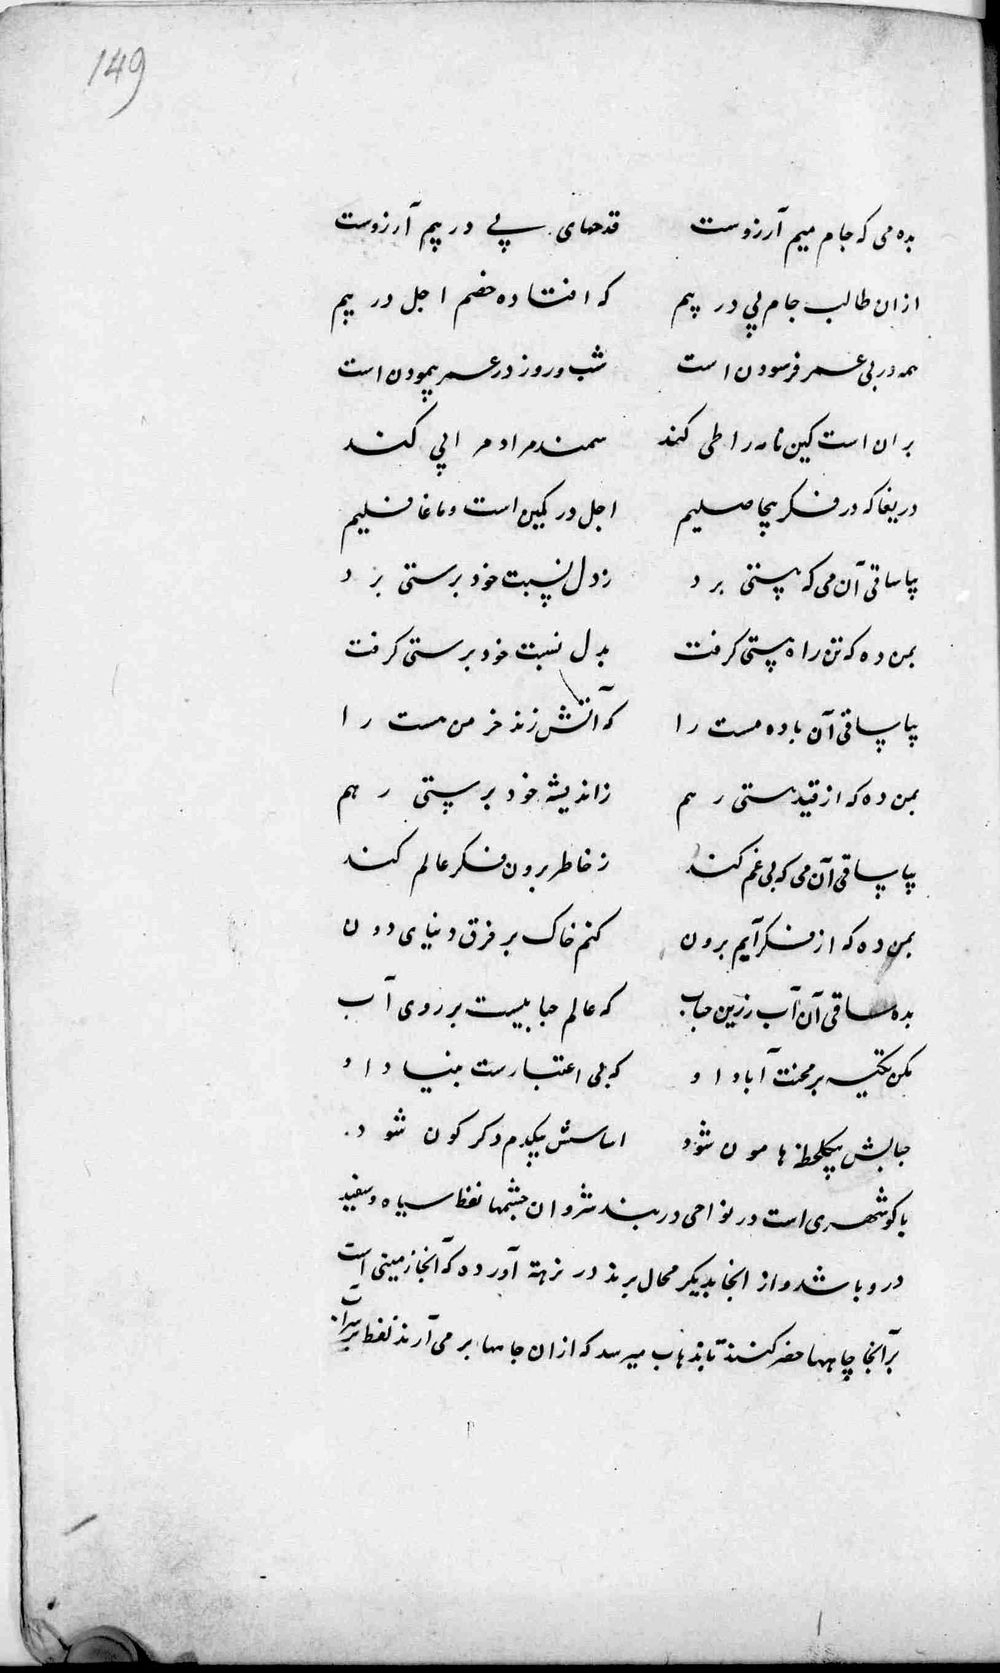 149
بده می که جام میم آرزوست قدحهای پی در پیم آرزوست
ازان طالب جام پی در پیم که افتاده خصم اجل در پیم
همه در پی عمر فرسودن است شب و روز در عمر پیمودن است
بران است کین نامه را طی کند سمند مراد مرا پی کند
دریغا که در فکر بیحاصلیم اجل در کمین است و ما غافلیم
بیا ساقی آن می که پستی برد ز دل نسبت خود پرستی برد
بمن ده که تن راه پستی گرفت بدل نسبت خود پرستی گرفت
بیا ساقی آن باده مست را که آتش زند خرمن هست را
بمن ده که از قید هستی رهم ز اندیشه خود پرستی رهم
بیا ساقی آن می که بی غم کند ز خاطر برون فکر عالم کند
بمن ده که از فکر آیم برون کنم خاک بر فرق دنیای دون
بده ساقی آن آب زرین حباب که عالم حبابیست بر روی آب
مکن تکیه بر محنت آباد او که بی اعتبارست بنیاد او
حبابش بیکلحظه هامون شود اساسش بیکدم دگرگون شود
باکو شهری است در نواحی دربند شروان چشمها نفط سیاه و سفید
درو باشد و از انجا بدیگر محال برند در نزهة آورده که آنجا زمینی است
بر آنجا چاهها حفر کنند تا بذهاب میرسد که ازان چاهها بر می آرند نفط بر سر آب